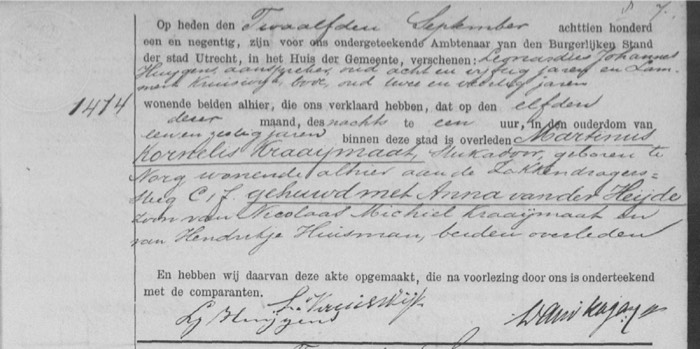 7.
Op heden den Twaalfden September achttien honderd
een en negentig, zijn voor ons ondergeteekende Ambtenaar van den Burgerlijken Stand
der stad Utrecht, in het Huis der Gemeente, verschenen: Leonardus Johannes
Huygens, aanspreker, oud acht en vijftig jaren en Lam-
mert Kruiswijk, bode, oud twee en veertig jaren
1414 wonende beiden alhier, die ons verklaard hebben, dat op den elfden
dezer maand, des nachts te een uur, in den ouderdom van
een en zestig jaren binnen deze stad is overleden Martinus
Kornelis Kraaijmaat, geboren te
Norg wonende alhier aan de Zakkendragers-
steeg C, gehuwd met Anna van der Heijde
zoon van Nicolaas Michiel Kraaijmaat en
van Hendretje Huisman, beiden overleden
En hebben wij daarvan deze akte opgemaakt, die na voorlezing door ons is onderteekend
met de comparanten.
L. Kruiswijk
LJ Huijgens